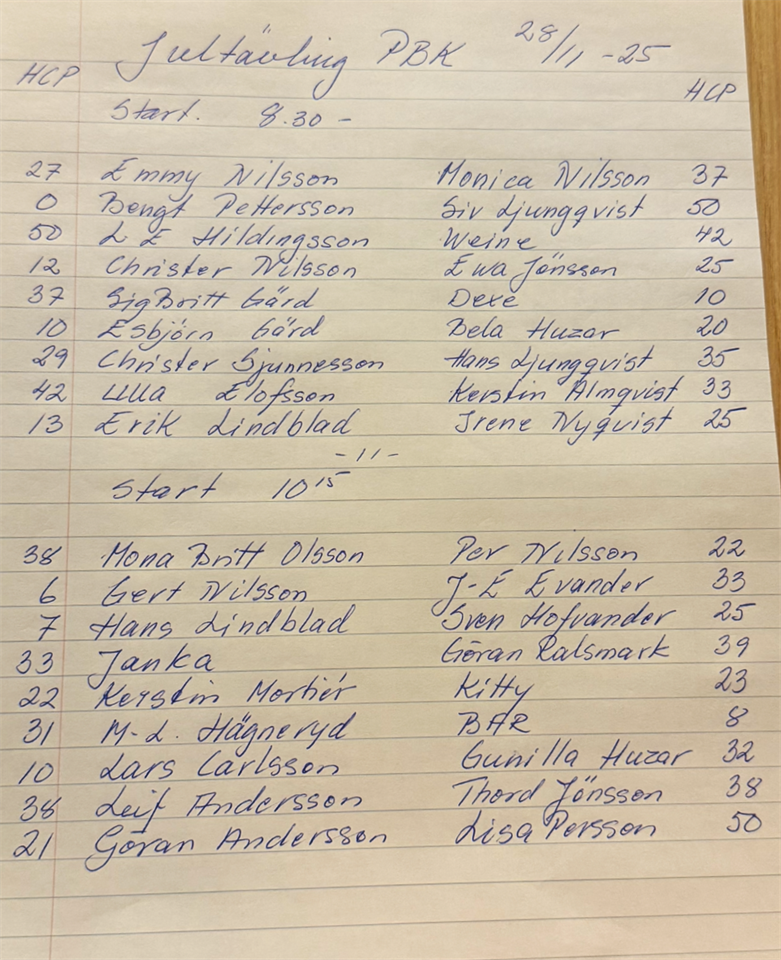 Jultävling PBK 28/11 -25
HCP HCP
Start. 8.30 -
27 Emmy Nilsson Monica Nilsson 37
0 Bengt Pettersson Siv Ljungqvist 50
50 L E Hildingsson Weine 42
12 Christer Nilsson Ewa Jönsson 25
37 SigBritt Gärd Dexe 10
10 Esbjörn Gärd Bela Huzar 20
29 Christer Sjunnesson Hans Ljungqvist 35
42 Ulla Elofsson Kerstin Almqvist 33
13 Erik Lindblad Irene Nyqvist 25
- 11 -
Start 10 15
38 Mona Britt Olsson Per Nilsson 22
6 Gert Nilsson J-E Evander 33
7 Hans Lindblad Sven Hofvander 25
33 Janka Göran Ralsmark 39
22 Kerstin Mortiér Kitty 23
31 M-L. Hägneryd BAR 8
10 Lars Carlsson Gunilla Huzar 32
38 Leif Andersson Thord Jönsson 38
21 Göran Andersson Lisa Persson 50